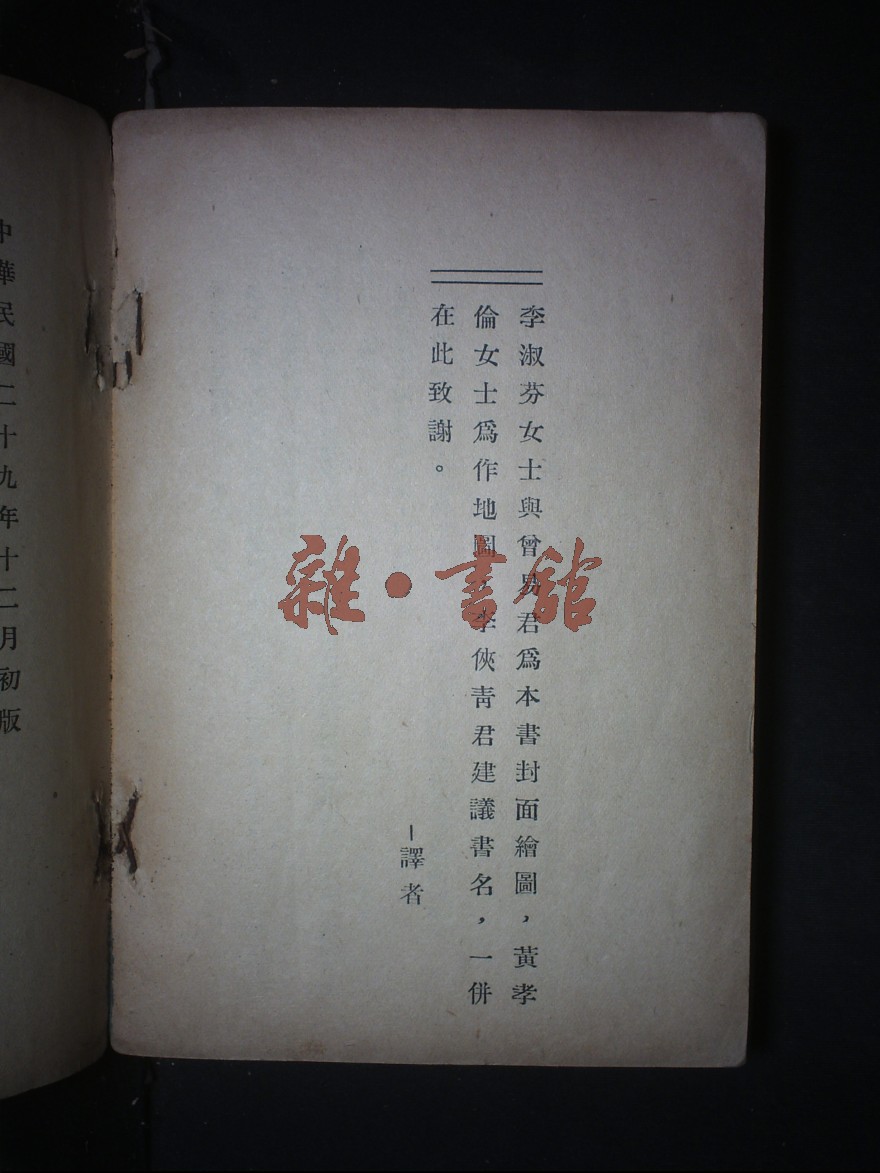 李淑芬女士與曾易君為本書封面繪圖，黃孝
倫女士為作地圖，李俠靑君建議書名，一併
在此致謝。
—譯者
中華民國二十九年十二月初版
雜•書館